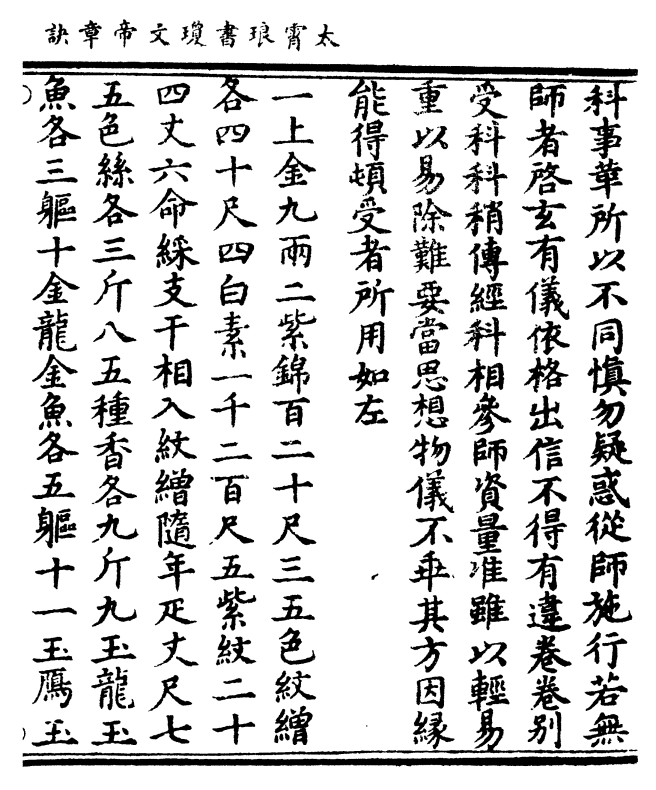 太霄琅書瓊文帝章訣
科事華所以不同慎勿疑惑從師施行若無
師者啓玄有儀依格出信不得有違卷卷别
受科科稍傳經科相參師資量准雖以輕易
重以易除難要當思想物儀不乖其方因緣
能得頓受者所用如左
一上金九兩二紫錦百二十尺三五色紋繒
各四十尺四白素一千二百尺五紫紋二十
四丈六命綵支干相入紋繒隨年疋丈尺七
五色絲各三斤八五種香各九斤九玉龍玉
魚各三軀十金龍金魚各五軀十一玉鴈玉